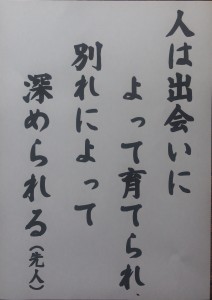 人は出会いに
よって育てられ、
別れによって
深められる(先人)